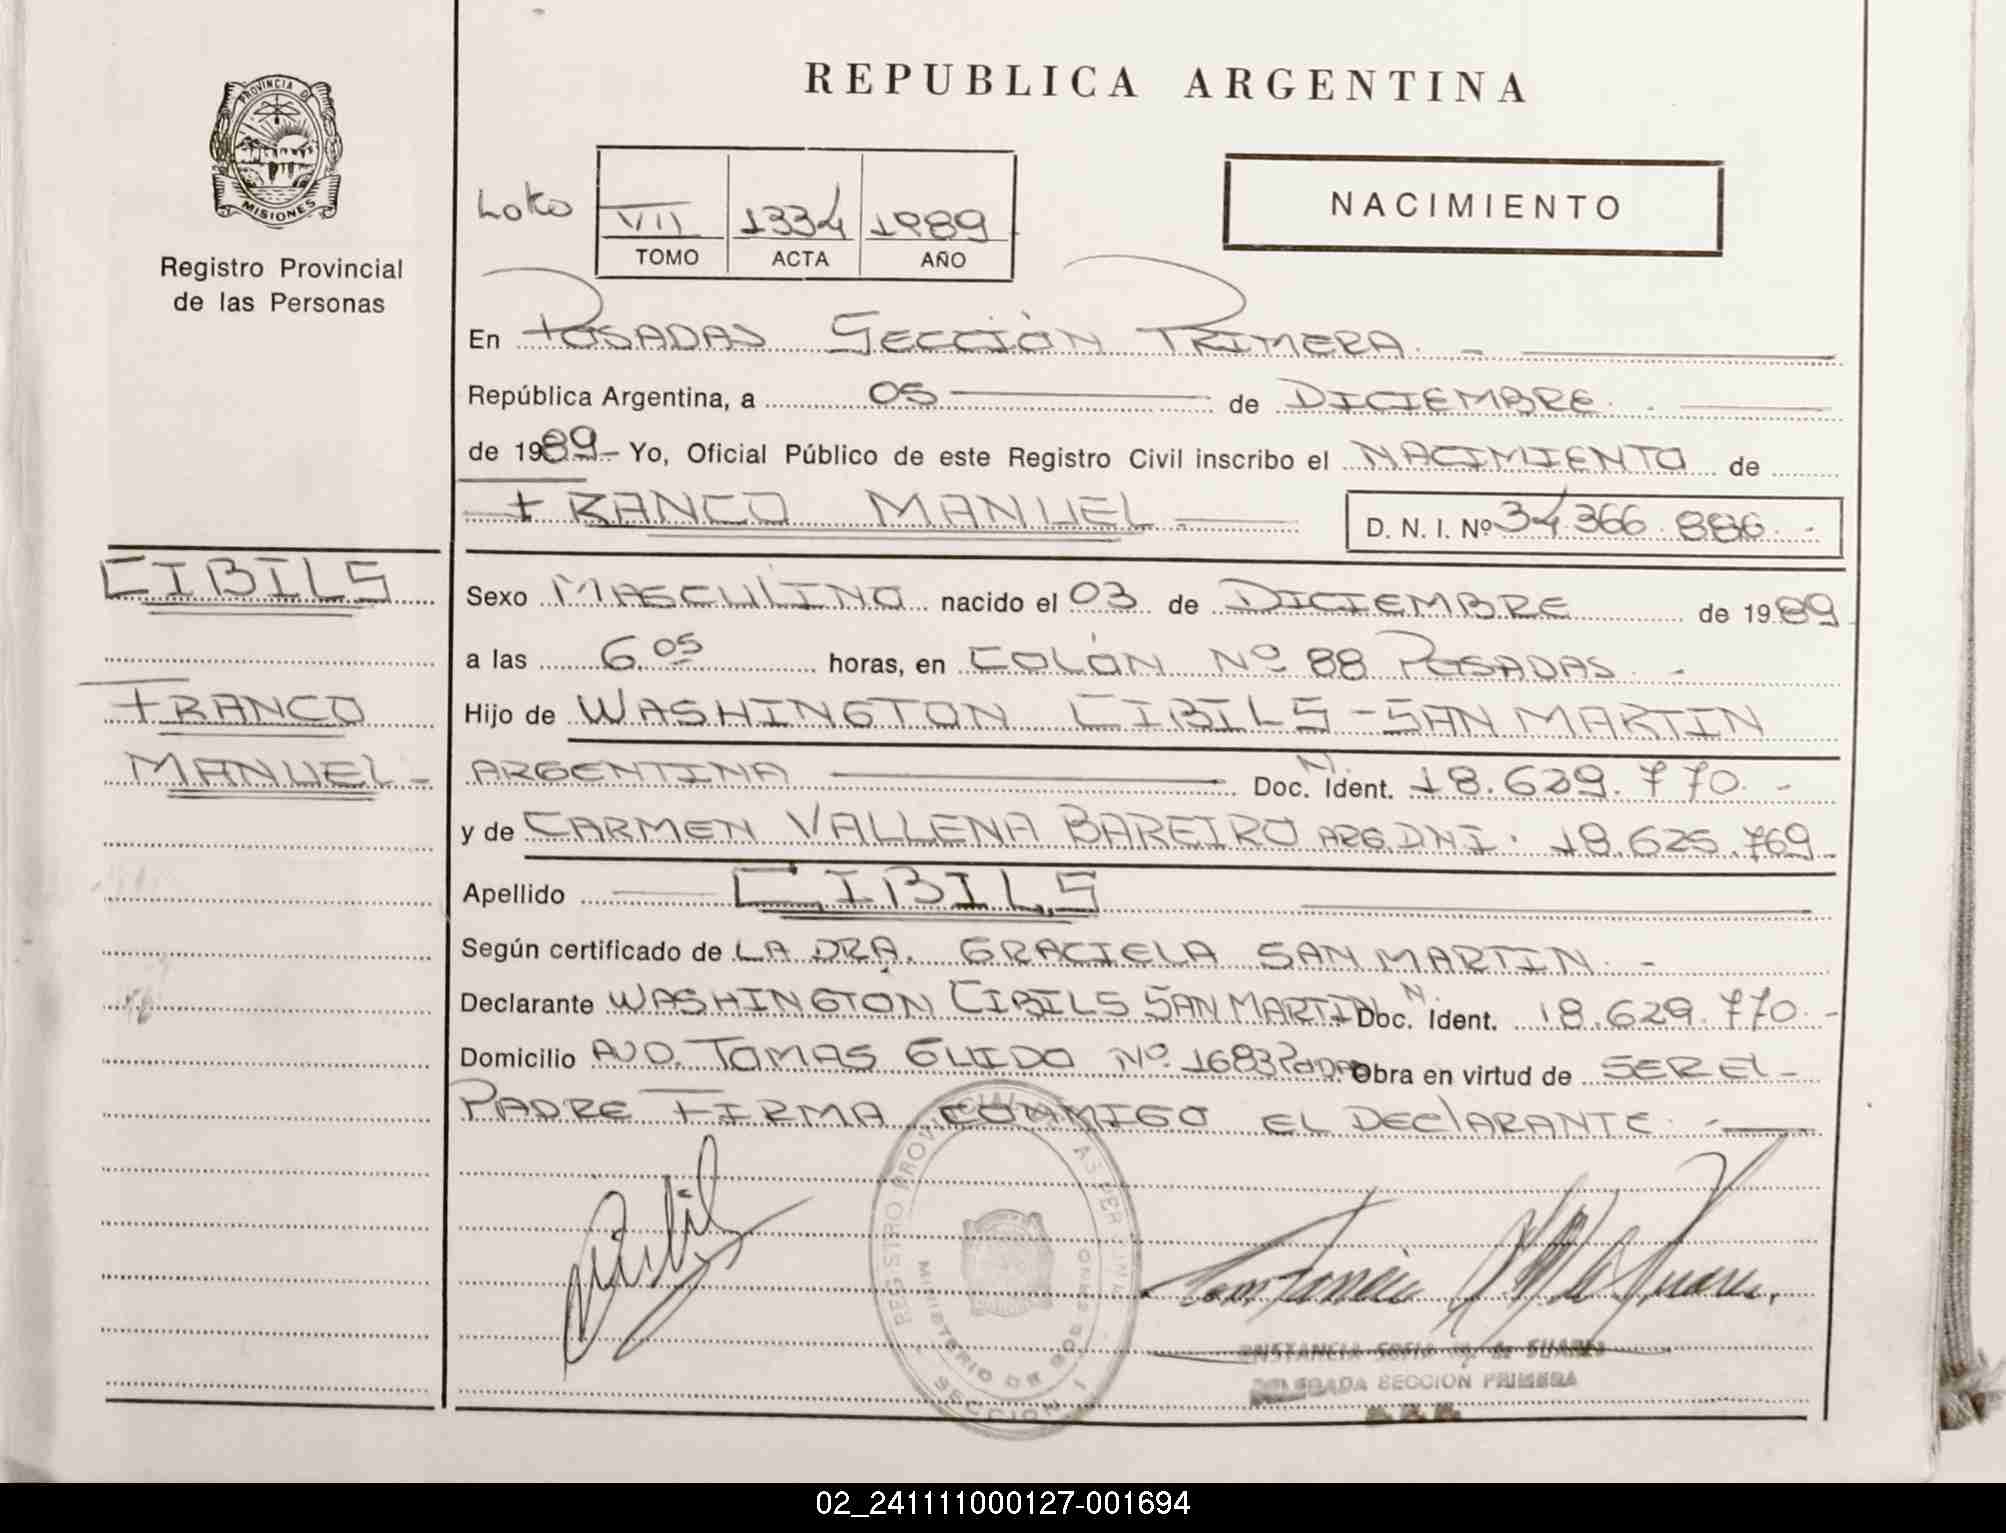 REPUBLICA ARGENTINA
PROVINCIA DE
MISIONES
Registro Provincial
de las Personas
NACIMIENTO
VII 1334 1989
TOMO ACTA AÑO
En POSADAS SECCIÓN PRIMERA. -
República Argentina, a 05 de DICIEMBRE.
de 1989- Yo, Oficial Público de este Registro Civil inscribo el NACIMIENTO de
FRANCO MANUEL D. N. I. Nº 34.366.886.-
CIBILS
FRANCO
MANUEL-
Sexo MASCULINO nacido el 03 de DICIEMBRE de 1989
a las 6.05 horas, en COLÓN Nº 88 POSADAS. -
Hijo de WASHINGTON CIBILS-SAN MARTIN
ARGENTINA Doc. N. Ident. 18.629.770.-
y de CARMEN VALLENA BAREIRO ARG.DNI. 18.625.769-
Apellido CIBILS
Según certificado de LA DRA. GRACIELA SAN MARTIN. -
Declarante WASHINGTON CIBILS SAN MARTIN Doc. N. Ident. 18.629.770.-
Domicilio AVD. TOMAS GUIDO Nº 1683 Obra en virtud de SER EL-
PADRE FIRMA CONMIGO EL DECLARANTE. -
REGISTRO PROVINCIAL
MINISTERIO DE GOBIERNO
SECCION 1
SOFIA de SUAREZ
DELEGADA SECCION PRIMERA
02_241111000127-001694